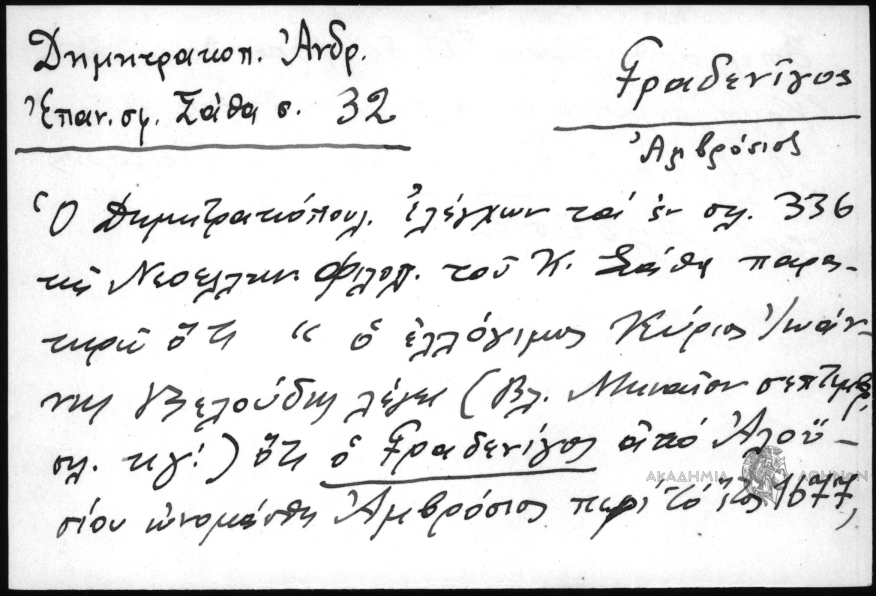 Δημητρακοπ. Ἀνδρ.
Ἐπαν. σφ. Σάθα σ. 32
Γραδενίγος
Ἀμβρόσιος
Ὁ Δημητρακόπουλ. ἐλέγχων τὰ ἐν σελ. 336
τῆς Νεοελλην. Φιλολ. τοῦ Κ. Σάθα παρα-
τηρεῖ ὅτι "ὁ ἐλλόγιμος Κύριος Ἰωάν-
νης Βελούδης λέγει (βλ. Μηναῖον σεπτεμβρ.
σελ. κγ΄.) ὅτι ὁ Γραδενίγος ἀπὸ Ἀλοϋ-
σίου ὠνομάσθη Ἀμβρόσιος περὶ τὸ ἔτος 1677,
ΑΚΑΔΗΜΙΑ ΑΘΗΝΩΝ